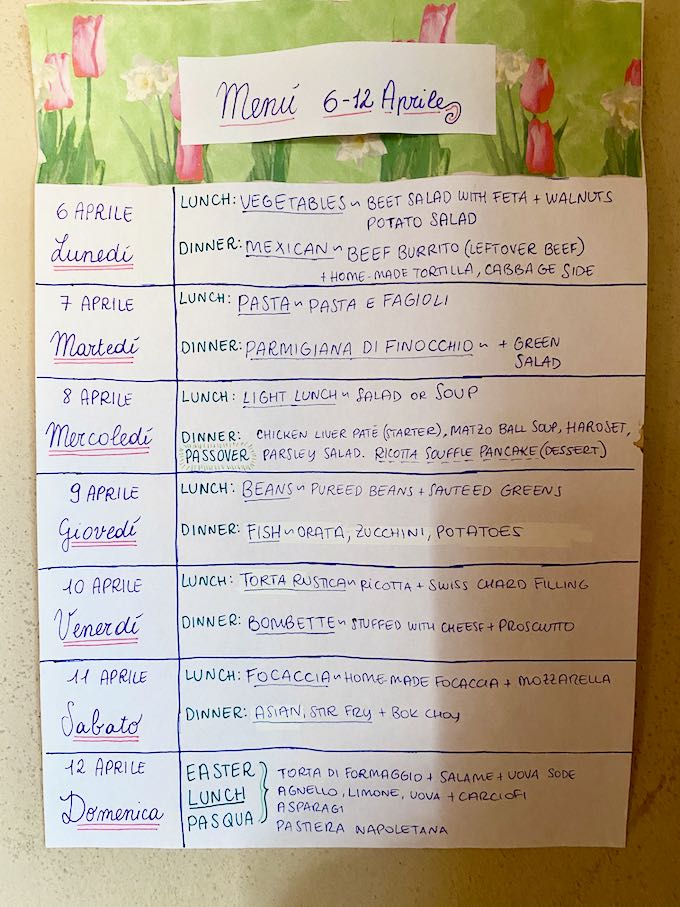 Menú 6-12 Aprile
6 APRILE
Lunedí
LUNCH: VEGETABLES ~ BEET SALAD WITH FETA + WALNUTS
POTATO SALAD
DINNER: MEXICAN ~ BEEF BURRITO (LEFTOVER BEEF)
+ HOME-MADE TORTILLA, CABBAGE SIDE
7 APRILE
Martedí
LUNCH: PASTA ~ PASTA E FAGIOLI
DINNER: PARMIGIANA DI FINOCCHIO ~ + GREEN
SALAD
8 APRILE
Mercoledí
LUNCH: LIGHT LUNCH ~ SALAD OR SOUP
DINNER: CHICKEN LIVER PATÉ (STARTER), MATZO BALL SOUP, HAROSET,
PASSOVER PARSLEY SALAD. RICOTTA SOUFFLE PANCAKE (DESSERT)
9 APRILE
Giovedí
LUNCH: BEANS ~ PUREED BEANS + SAUTEED GREENS
DINNER: FISH ~ ORATA, ZUCCHINI, POTATOES
10 APRILE
Venerdí
LUNCH: TORTA RUSTICA ~ RICOTTA + SWISS CHARD FILLING
DINNER: BOMBETTE ~ STUFFED WITH CHEESE + PROSCIUTTO
11 APRILE
Sabato
LUNCH: FOCACCIA ~ HOME-MADE FOCACCIA + MOZZARELLA
DINNER: ASIAN, STIR FRY + BOK CHOY
12 APRILE
Domenica
EASTER
LUNCH
PASQUA
TORTA DI FORMAGGIO + SALAME + UOVA SODE
AGNELLO, LIMONE, UOVA + CARCIOFI
ASPARAGI
PASTIERA NAPOLETANA